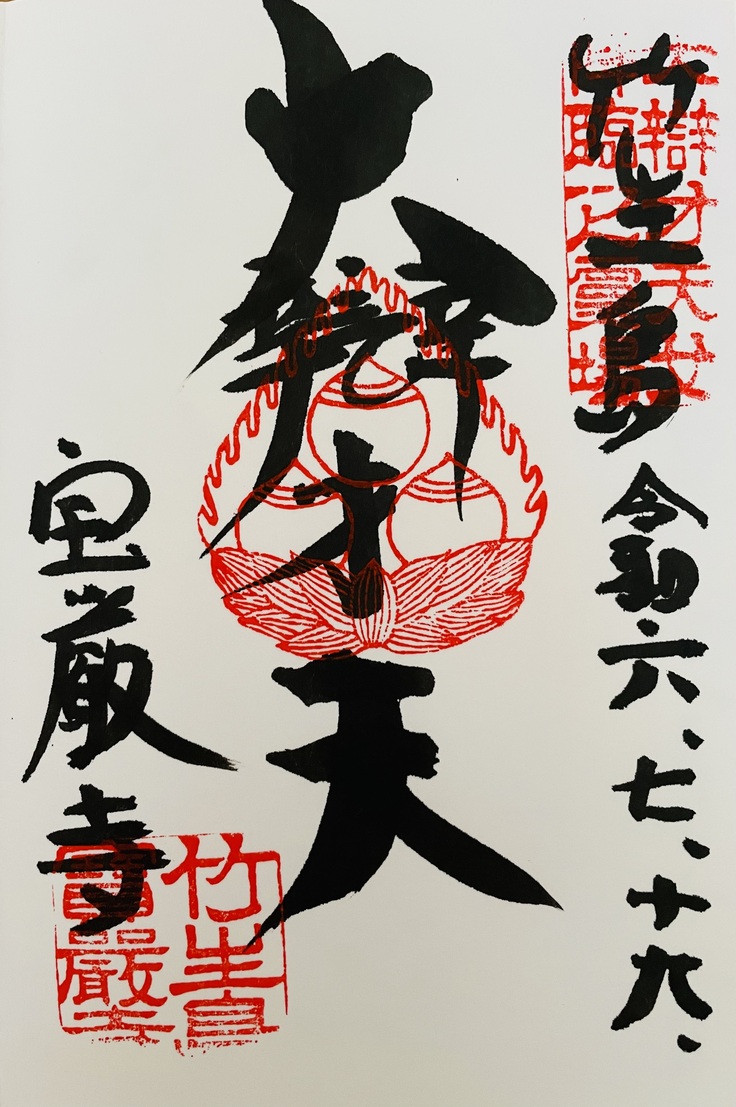 竹生島 令和六、七、十九、
大辯才天女
大辯才天
宝厳寺
竹生島
寶嚴寺